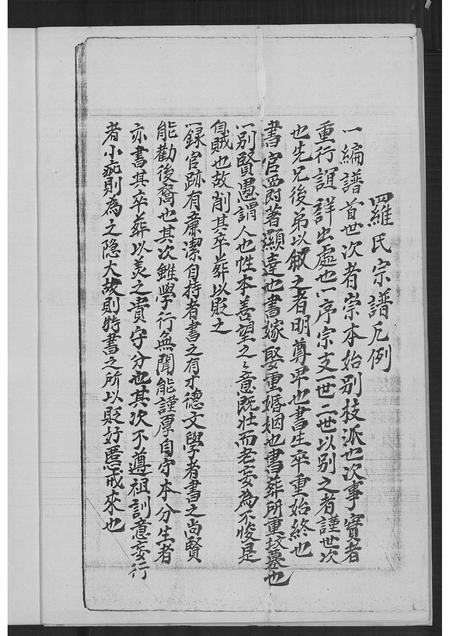 羅氏宗譜凡例
一編譜首世次者崇本始别枝派也次事實者
重行誼詳出處也一序宗支一世二世以别之者謹世次
也先兄後弟以叙之者明尊卑也書生卒重始終也
書官爵著顯達也書嫁娶重婚姻也書葬所重坟墓也
一别賢愚謂人也性本善望之之意既壮而老妄為不悛是
自賊也故削其卒葬以貶之
一録官跡有廉潔自持者書之有才德文學者書之尚賢
能勸後裔也其次雖學行無聞能謹厚自守本分生者
亦書其卒葬以美之貴守分也其次不遵祖訓意妄行
者小疵則為之隐大故則特書之所以貶奸慝戒來也